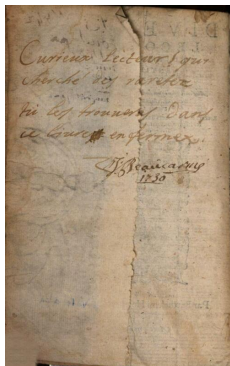 Curieux Lecteur / qui
cherche des raretez
tu les trouveras dans
ce livre enfermez.
1730